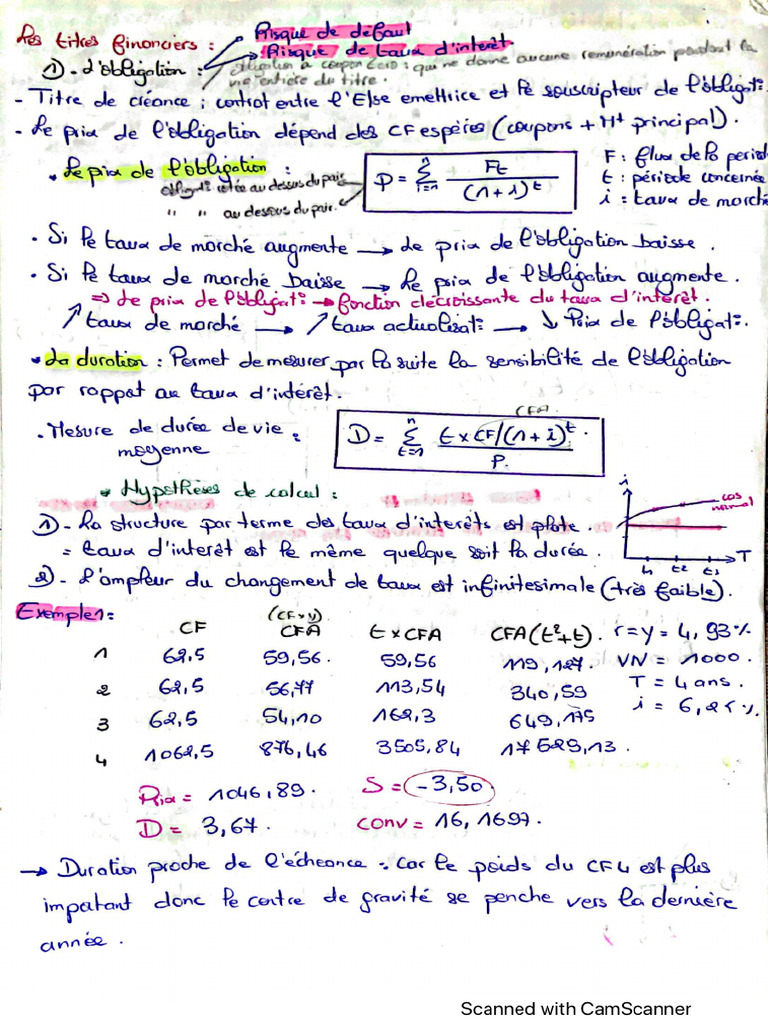 Les titres financiers : Risque de défaut
Risque de taux d'intérêt
1) - L'obligation : obligation à coupon zéro : qui ne donne aucune rémunération pendant la
vie entière du titre.
- Titre de créance ; contrat entre l'Else emettrice et le souscripteur de l'obligat°.
- Le prix de l'obligation dépend des CF espérés (coupons + Mt principal).
• Le prix de l'obligation :
obligat° cotée au dessus du pair
" " au dessous du pair.
P = Σ(i=1→n) Ft / (1+i)^t
F : flux de la période
t : période concernée
i : taux de marché
• Si le taux de marché augmente → Le prix de l'obligation baisse.
• Si le taux de marché baisse → Le prix de l'obligation augmente.
⇒ Le prix de l'obligat° → fonction décroissante du taux d'intérêt.
↗ taux de marché → ↗ taux actualisat° → ↓ Prix de l'obligat°.
• La duration : Permet de mesurer par la suite la sensibilité de l'obligation
par rappot au taux d'intérêt.
• Mesure de durée de vie
moyenne :
CFA
D = Σ(t=1→n) t x CF/(1+i)^t / P.
• Hypothèses de calcul :
1) - La structure par terme des taux d'interêts est plate.
= taux d'interêt est le même quelque soit la durée.
i
cas normal
t1 t2 t3 T
2) - L'ampleur du changement de taux est infinitesimale (très faible).
Exemple 1 :
CF (CF x y) CFA t x CFA CFA (t²+t).
1 62,5 59,56 59,56 119,127
2 62,5 56,77 113,54 340,59
3 62,5 54,10 162,3 649,175
4 1062,5 876,46 3505,84 17529,13.
r = y = 4,93 %
VN = 1000.
T = 4 ans.
i = 6,25 %.
Prix = 1046,89. S = -3,50
D = 3,67. Conv = 16,1697.
→ Duration proche de l'écheance. Car le poids du CF4 est plus
impatant donc le centre de gravité se penche vers la dernière
année.
Scanned with CamScanner